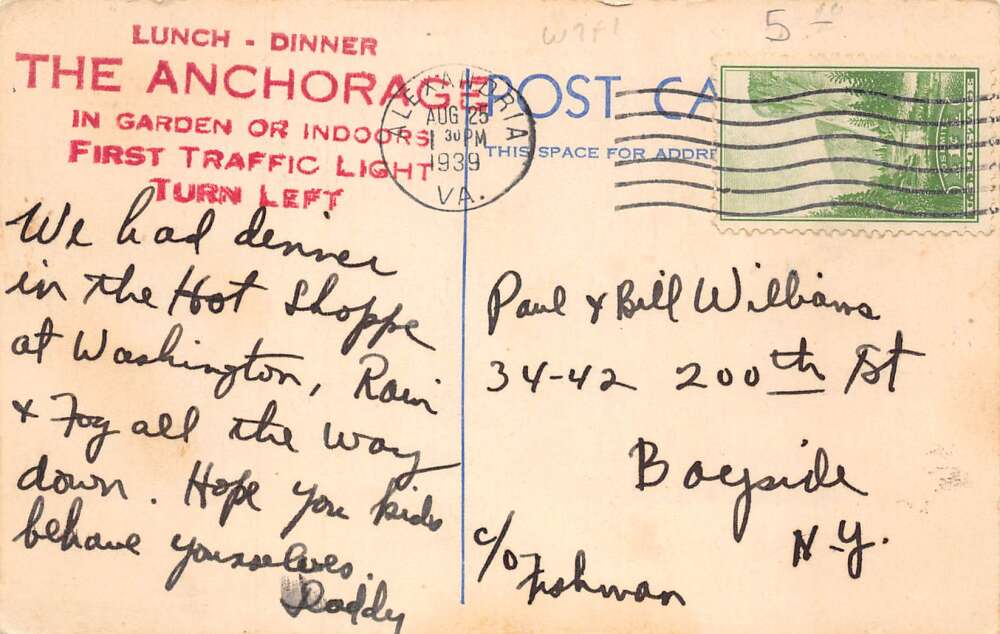 LUNCH - DINNER
THE ANCHORAGE
IN GARDEN OR INDOORS
FIRST TRAFFIC LIGHT
TURN LEFT
We had dinner
in the Hot Shoppe
at Washington, Rain
& Fog all the way
down. Hope you kids
behave yourselves.
Daddy
5
ALEXANDRIA
AUG 25
1 30 PM
1939
VA.
POST CA
THIS SPACE FOR ADDRE
Paul & Bill Williams
34-42 200th St
Bayside
N-Y.
c/o Fishman